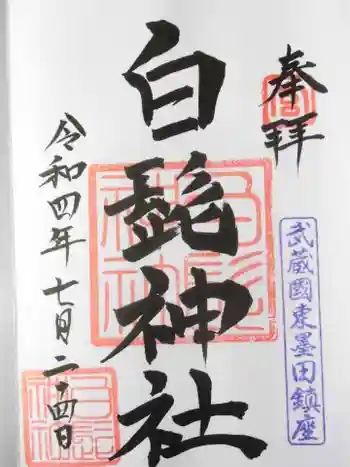 奉拝
武蔵國東墨田鎮座
白髭神社
令和四年七月二十四日